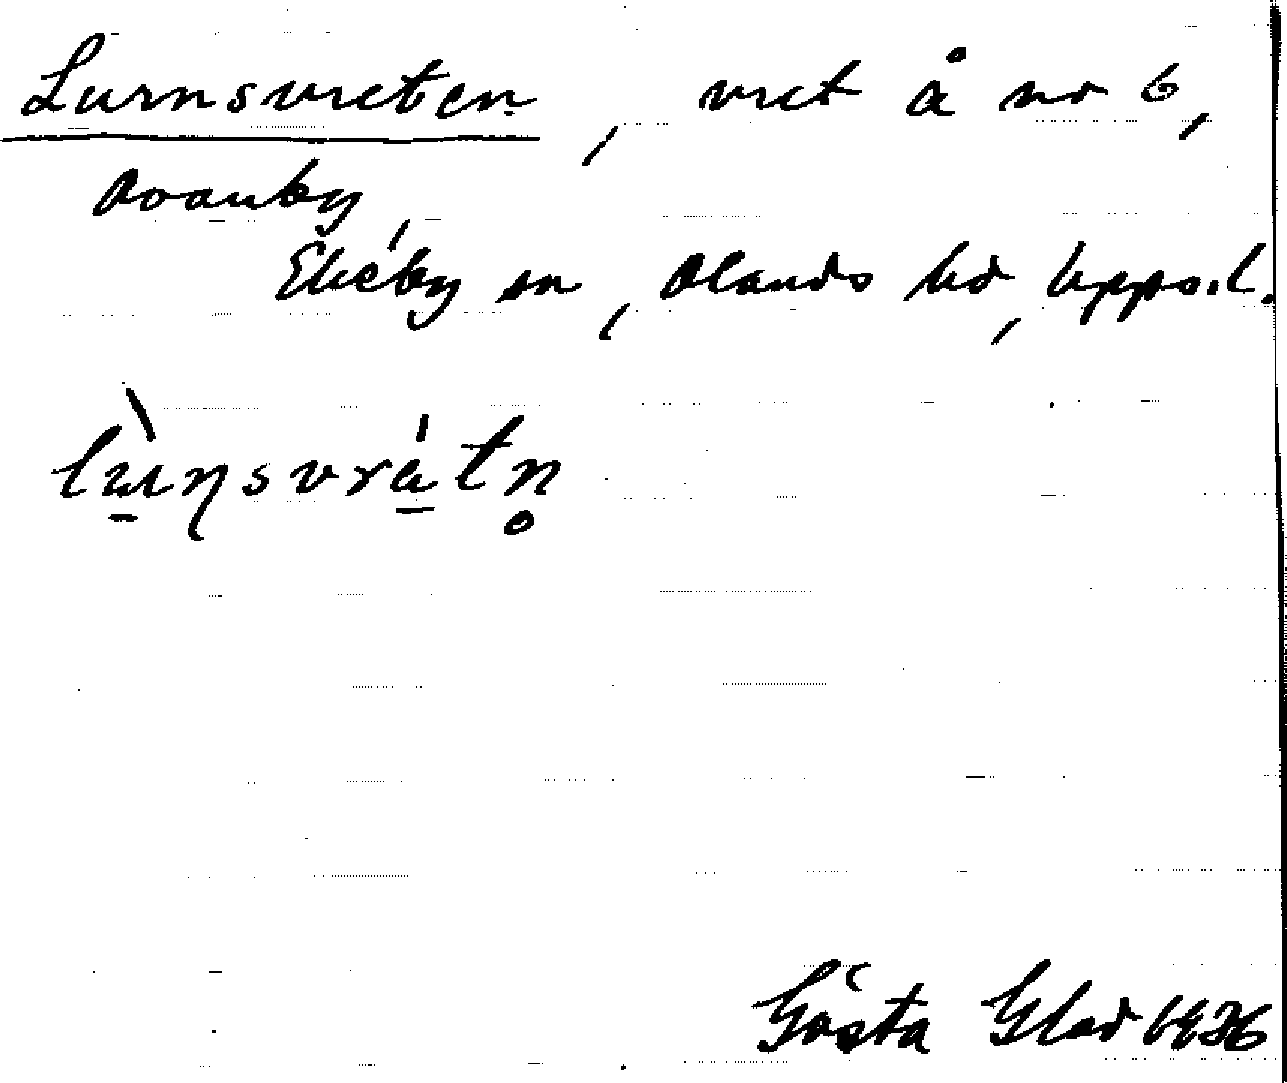 Lurnsvreten, vret å nr 6,
Ovanby,
Ekeby sn, Olands hd, Upps. l.
lùṇsvrátn̥
Gösta Glad 1936